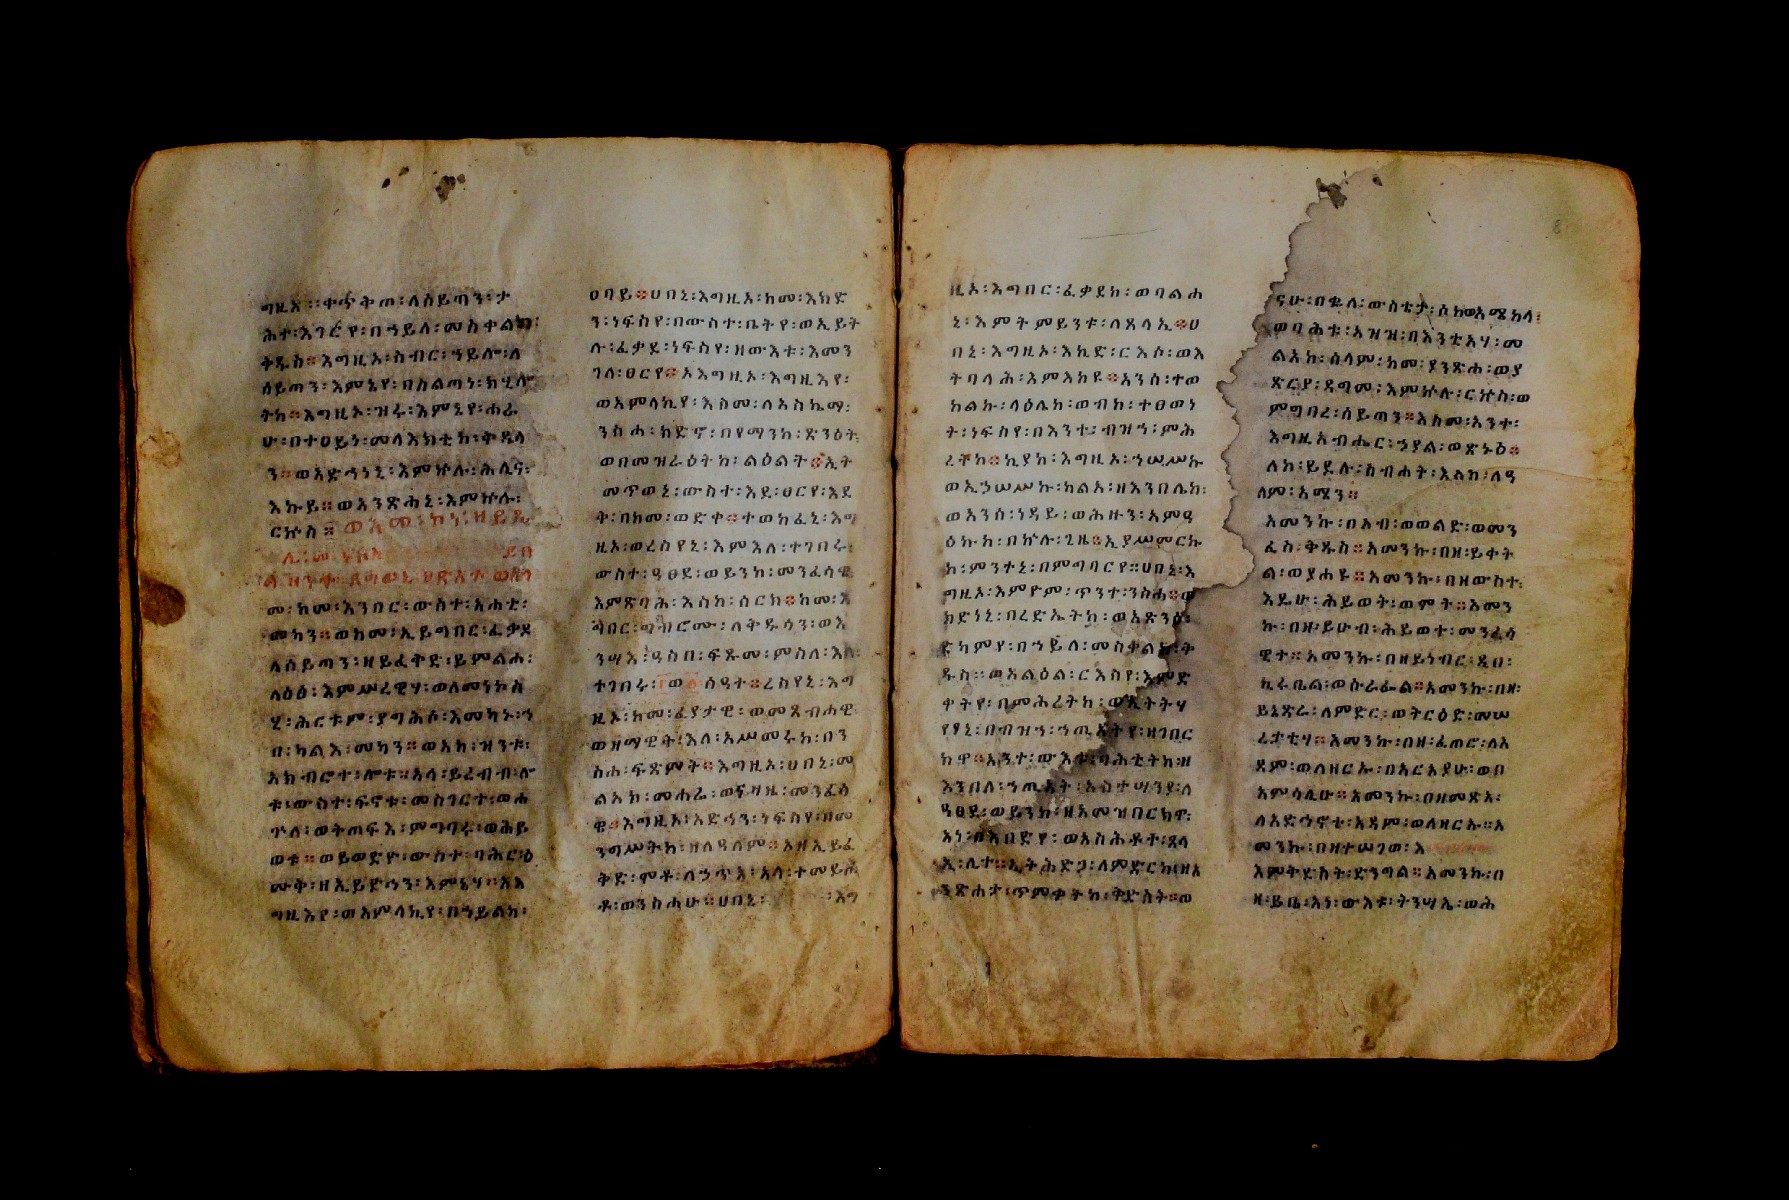 ግዚእ ፡፡ ቀጥቅጦ ፡ ለሰይጣን ፡ ታ
ሕተ ፡ እገሪየ ፡ በኀይለ ፡ መስቀልከ ፡
ቅዱስ ። እግዚኦ ፡ ስብር ፡ ኀይሎ ፡ ለ
ሰይጣን ፡ እምኔየ ፡ በስልጣነ ፡ ክሂሎ
ትከ ። እግዚኦ ፡ ዝሩ ፡ እምኔየ ፡ ሐራ
ሁ ፡ በተዐይነ ፡ መላእክቲከ ፡ ቅዱሳ
ን ። ወአድኅነኒ ፡ እምኵሉ ፡ ሕሊና ፡
እኩይ ። ወአንጽሐኒ ፡ እምኵሉ ፡
ርኵስ ።
መ ፡ ከመ ፡ እንበር ፡ ውስተ ፡ አሐቲ ፡
መካን ። ወከመ ፡ ኢይግበር ፡ ፈቃደ
ለሰይጣን ፡ ዘይፈቅድ ፡ ይምልሐ ፡
ለዕፅ ፡ እምሥረዊሃ ፡ ወለመነኮስ
ሂ ፡ ሕርቱም ፡ ያግሕሶ ፡ እመካኑ ፡ ኀ
በ ፡ ካልእ ፡ መካን ። ወአከ ፡ ዝንቱ ፡
አክብሮተ ፡ ሎቱ ። አላ ፡ ይረብብ ፡ ሎ
ቱ ፡ ውስተ ፡ ፍኖቱ ፡ መስገርተ ፡ ወሐ
ጕለ ፡ ወትጠፍእ ፡ ምግባሩ ፡ ወሕይ
ወቱ ። ወይወድዮ ፡ ውስተ ፡ ባሕር ፡ ዕ
ሙቅ ፡ ዘኢይድኅን ፡ እምኔሃ ። አእ
ግዚእየ ፡ ወአምላኪየ ፡ በኀይልከ ፡
ዐባይ ። ሀበኒ ፡ እግዚኦ ፡ ከመ ፡ እክድ
ን ፡ ነፍስየ ፡ በውስተ ፡ ቤትየ ፡ ወኢይት
ሉ ፡ ፈቃደ ፡ ነፍስየ ፡ ዘውእቱ ፡ እመን
ገለ ፡ ፀርየ ። ኦእግዚኦ ፡ እግዚእየ ፡
ወአምላኪየ ፡ እስመ ፡ ለአስኬማ ፡
ንስሐ ፡ ክድኖ ፡ በየማንከ ፡ ጽንዕት ፡
ወበመዝራዕትከ ፡ ልዕልት ። ኢት
መጥወኒ ፡ ውስተ ፡ እደ ፡ ፀርየ ፡ እደ
ቅ ፡ በከመ ፡ ወድቀ ። ተወከፈኒ ፡ እግ
ዚኦ ፡ ወረስየኒ ፡ እምእለ ፡ ተገበሩ ፡
ውስተ ፡ ዓፀደ ፡ ወይንከ ፡ መንፈሳዊ
እምጽባሕ ፡ እስከ ፡ ሰርክ ። ከመ ፡ እ
ግበር ፡ ግብሮሙ ፡ ለቅዱሳን ፡ ወእ
ንሣእ ፡ ዓስበ ፡ ፍጹመ ፡ ምስለ ፡ እለ ፡
ተገበሩ ፡ ፲ወ፩ ሰዓት ። ረስየኒ ፡ እግ
ዚኦ ፡ ከመ ፡ ፈያታዊ ፡ ወመጸብሐዊ
ወዘማዊት ፡ እለ ፡ አሥመሩከ ፡ በን
ስሐ ፡ ፍጽምት ። እግዚኦ ፡ ሀበኒ ፡ መ
ልአከ ፡ መሐሬ ፡ ወናዛዜ ፡ መንፈሳ
ዌ ። እግዚኦ ፡ አድኅን ፡ ነፍስየ ፡ በመ
ንግሥትከ ፡ ዘለዓለም ። አዘኢይፈ
ቅድ ፡ ሞቶ ፡ ለኃጥእ ፡ አላ ፡ ተመይጦ
ቶ ፡ ወንስሐሁ ። ሀበኒ ፡ ፡ እግ
ዚኦ ፡ እግበር ፡ ፈቃደከ ፡ ወባልሐ
ኒ ፡ እምትምይንቱ ፡ ለጸላኢ ። ሀ
በኒ ፡ እግዚኦ ፡ እኪድ ፡ ርእሶ ፡ ወእ
ትባላሕ ፡ እምእከዩ ። አንሰ ፡ ተወ
ከልኩ ፡ ላዕሌከ ፡ ወብከ ፡ ተፀወነ
ት ፡ ነፍስየ ፡ በእንተ ፡ ብዝኀ ፡ ምሕ
ረትከ ። ኪያከ ፡ እግዚኦ ፡ ኀሠሥኩ
ወኢኃሠሥኩ ፡ ካልአ ፡ ዘእንበሌከ ፡
ወአንሰ ፡ ነዳይ ፡ ወሕዙን ፡ አምዓ
ዕኩከ ፡ በኵሉ ፡ ጊዜ ። ኢያሥመርኩ
ከ ፡ ምንተኒ ፡ በምግባርየ ። ሀበኒ ፡ እ
ግዚኦ ፡ እምዮም ፡ ጥንተ ፡ ንስሐ ። ወ
ክድነኒ ፡ በረድኤትከ ፡ ወአጽንዕ ፡
ድካምየ ፡ በኀይለ ፡ መስቀልከ ፡ ቅ
ዱስ ። ወአልዕል ፡ ርእስየ ፡ እምድ
ቀትየ ፡ በምሕረትከ ፡ ወኢትትሃ
የየኒ ፡ በብዝኀ ፡ ኀጢአትየ ፡ ዘገበር
ኩዋ ። አንተ ፡ ውእቱ ፡ ባሕቲትከ ፡ ዘ
እንበለ ፡ ኀጢአት ፡ አስተሣንያ ፡ ለ
ዓፀደ ፡ ወይንከ ፡ ዘአመዝበርክዎ ፡
አነ ፡ በአበድየ ፡ ወአስሕቶተ ፡ ጸላ
ኢ ፡ ሊተ ። ኢትሕድጋ ፡ ለምድርከ ፡ ዘአ
ንጽሐታ ፡ ጥምቀትከ ፡ ቅድስት ። ወ
ናሁ ፡ በቈለ ፡ ውስቴታ ፡ ሶክ ወአሜከላ ፡
ወባሕቱ ፡ አዝዝ ፡ በእንቲአሃ ፡ መ
ልአከ ፡ ሰላም ፡ ከመ ፡ ያንጽሐ ፡ ወያ
ጽርያ ፡ ዳግመ ፡ እምኵሉ ፡ ርኵስ ፡ ወ
ምግባረ ፡ ሰይጣን ። እስመ ፡ አንተ ፡
እግዚአብሔር ፡ ኀያል ፡ ወጽኑዕ ።
ለከ ፡ ይደሉ ፡ ስብሐት ፡ እስከ ፡ ለዓ
ለም ፡ አሜን ።
አመንኩ ፡ በአብ ፡ ወወልድ ፡ ወመን
ፈስ ፡ ቅዱስ ። አመንኩ ፡ በዘ ፡ ይቀት
ል ፡ ወያሐዩ ። አመንኩ ፡ በዘውስተ ፡
እዴሁ ፡ ሕይወት ፡ ወሞት ። አመን
ኩ ፡ በዘ ፡ ይሁብ ፡ ሕይወተ ፡ መንፈሳ
ዊተ ። አመንኩ ፡ በዘይነብር ፡ ዲበ ፡
ኪሩቤል ፡ ወሱራፌል ። አመንኩ ፡ በዘ ፡
ይኔጽራ ፡ ለምድር ፡ ወትርዕድ ፡ መሠ
ረታቲሃ ። አመንኩ ፡ በዘ ፡ ፈጠሮ ፡ ለአ
ዳም ፡ ወለዘርኡ ፡ በአርአያሁ ፡ ወበ
አምሳሊሁ ። አመንኩ ፡ በዘመጽአ ፡
ለአድኅኖቱ ፡ አዳም ፡ ወለዘርኡ ። አ
መንኩ ፡ በዘተሠገወ ፡ እ
እምቅድስት ፡ ድንግል ። አመንኩ ፡ በ
ዘ ፡ ይቤ ፡ አነ ፡ ውእቱ ፡ ትንሣኤ ፡ ወሕ